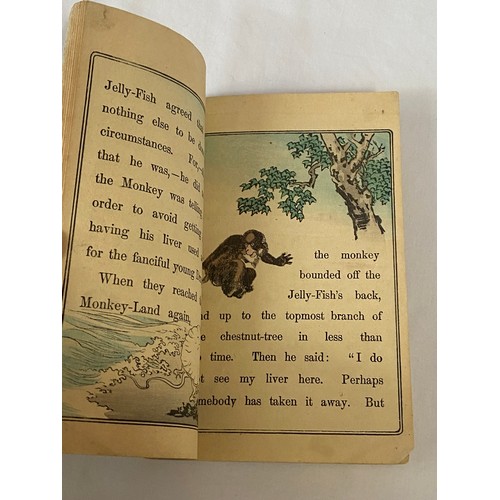 Jelly-Fish agreed
nothing else to be
circumstances. For,
that he was,—he did
the Monkey was
order to avoid
having his liver used
for the fanciful young
When they reached
Monkey-Land again,
the monkey
bounded off the
Jelly-Fish's back,
up to the topmost branch of
chestnut-tree in less than
time. Then he said: "I do
see my liver here. Perhaps
has taken it away. But